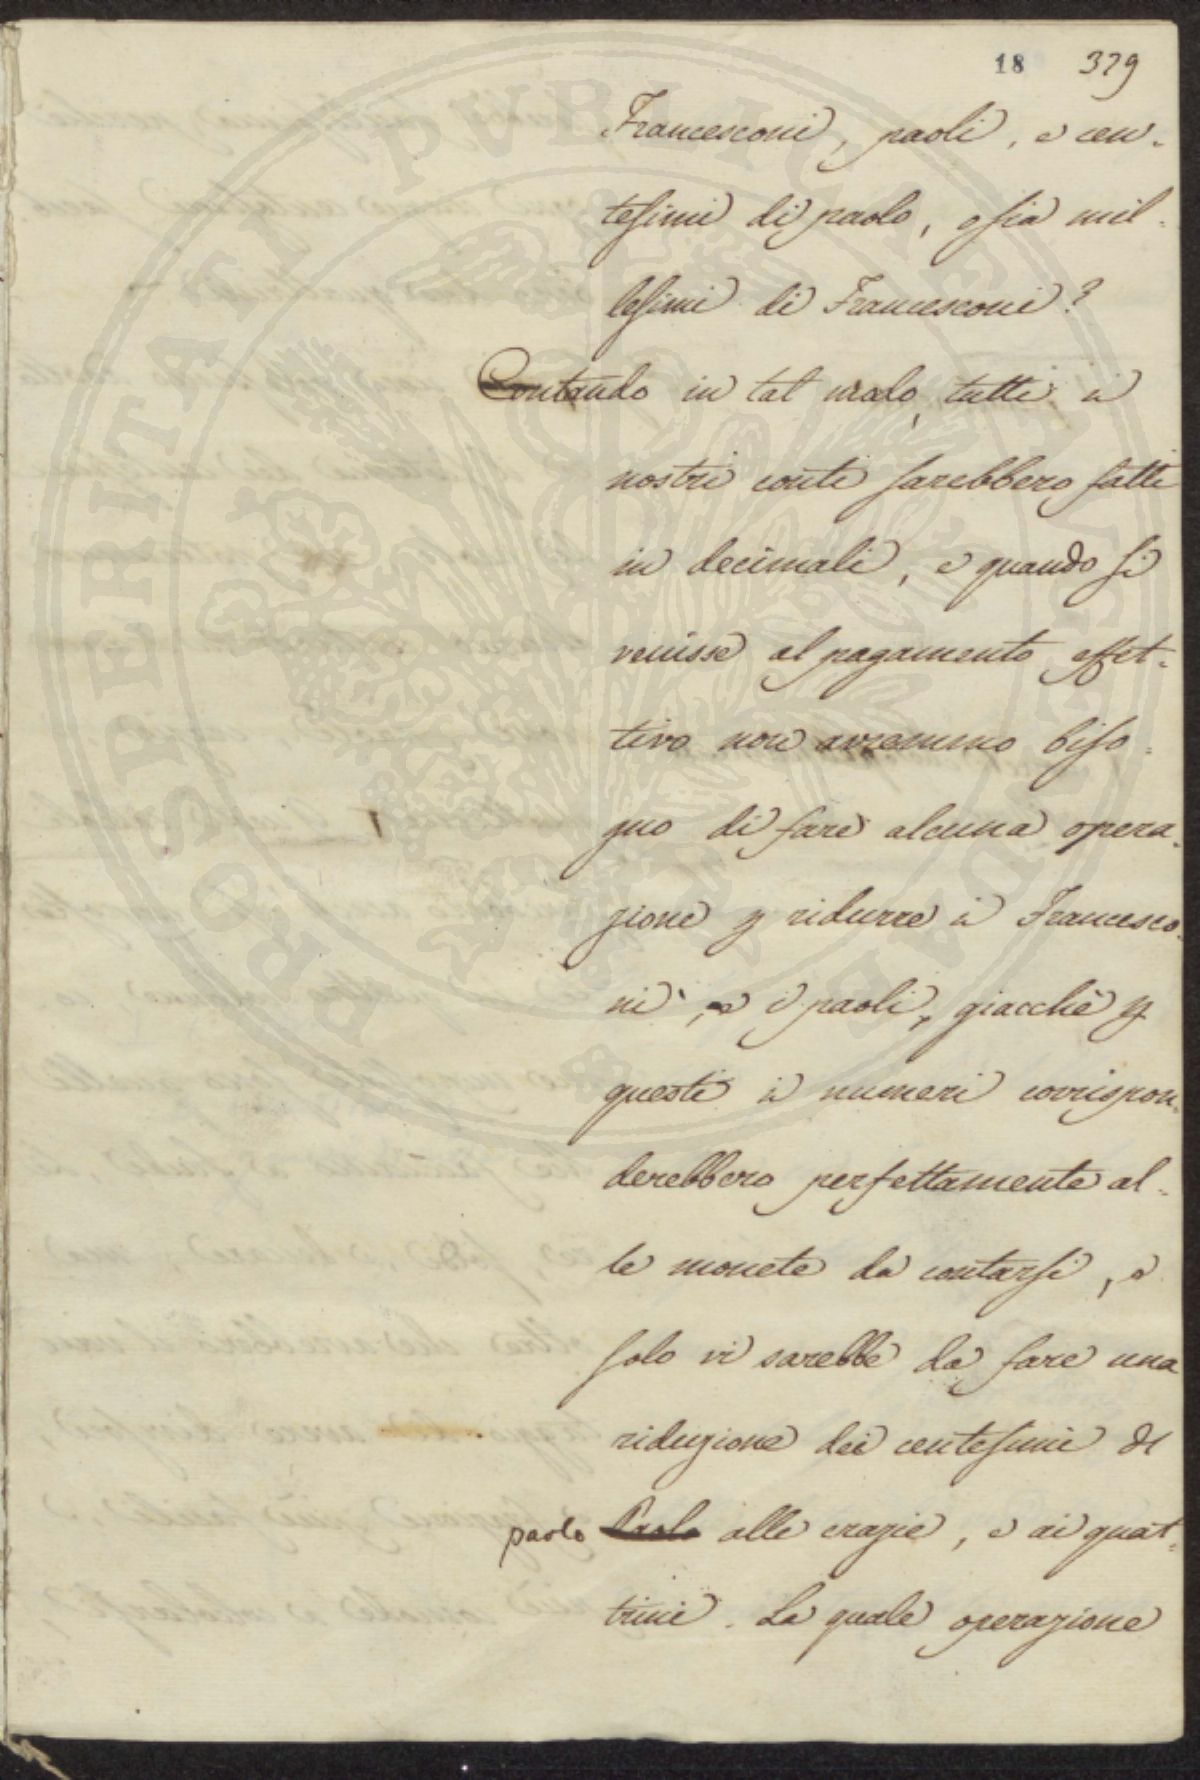 18 379
Francesconi, paoli, e cen-
tesimi di paolo, osia mil-
lesimi di Francesconi?
Contando in tal modo, tutti i
nostri conti sarebbero fatti
in decimali, e quando si
venisse al pagamento effet-
tivo non avremmo biso-
gno di fare alcuna opera-
zione p ridurre i Francesco-
ni, e i paoli, giacchè p
questi i numeri corrispon-
derebbero perfettamente al-
le monete da contarsi, e
solo vi sarebbe da fare una
riduzione dei centesimi di
paolo Paolo alle crazie, e ai quat-
trini. La quale operazione
PROSPERITATI PVBLICAE AVGENDAE